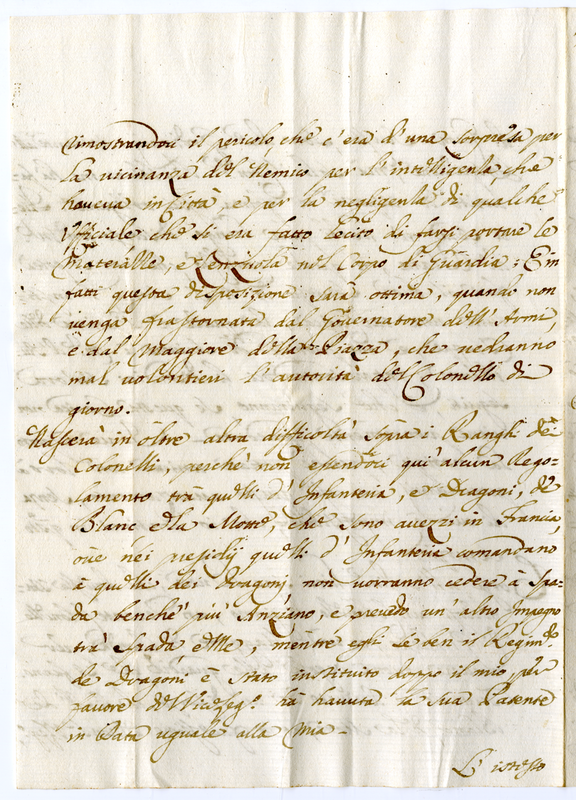 rimostrandoci il pericolo, che c'era d'una sorpresa per
la vicinanza del Nemico per l'intelligenza, che
haveva in Città, e per la negligenza di qualche
Officiale che si era fatto lecito di farsi portare le
Materasse, e Lenzuola nel Corpo di Guardia; E in
fatti questa disposizione sarà ottima, quando non
venga frastornata dal Governatore dell'Armi,
e dal Maggiore della Piazza, che vedranno
mal volontieri l'autorità del Colonello di
giorno.
Nascerà in oltre altra difficoltà sopra i Ranghi dei
Colonelli, perche non essendoci qui alcun Rego-
lamento trà quelli d'Infanteria, e Dragoni, de
Blanc e la Motte, che sono avezzi in Francia,
ove nei presidij quelli d'Infanteria comandano
à quelli dei Dragoni non vorranno cedere à Spa-
da benche più Anziano, e prevedo un'altro Impegno
trà Spada e Me, mentre egli se ben il Regim.to
de Dragoni è stato instituito doppo il mio per
favore del Viceleg.o hà havuta la sua Patente
in Data uguale alla Mia.
L'istesso